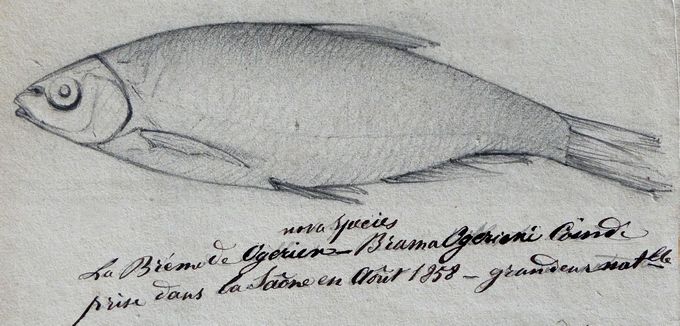 nova species
La Brême de Ogerien — Brama Ogerieni Coinde
prise dans la Saône en Août 1858 — grandeur natlle